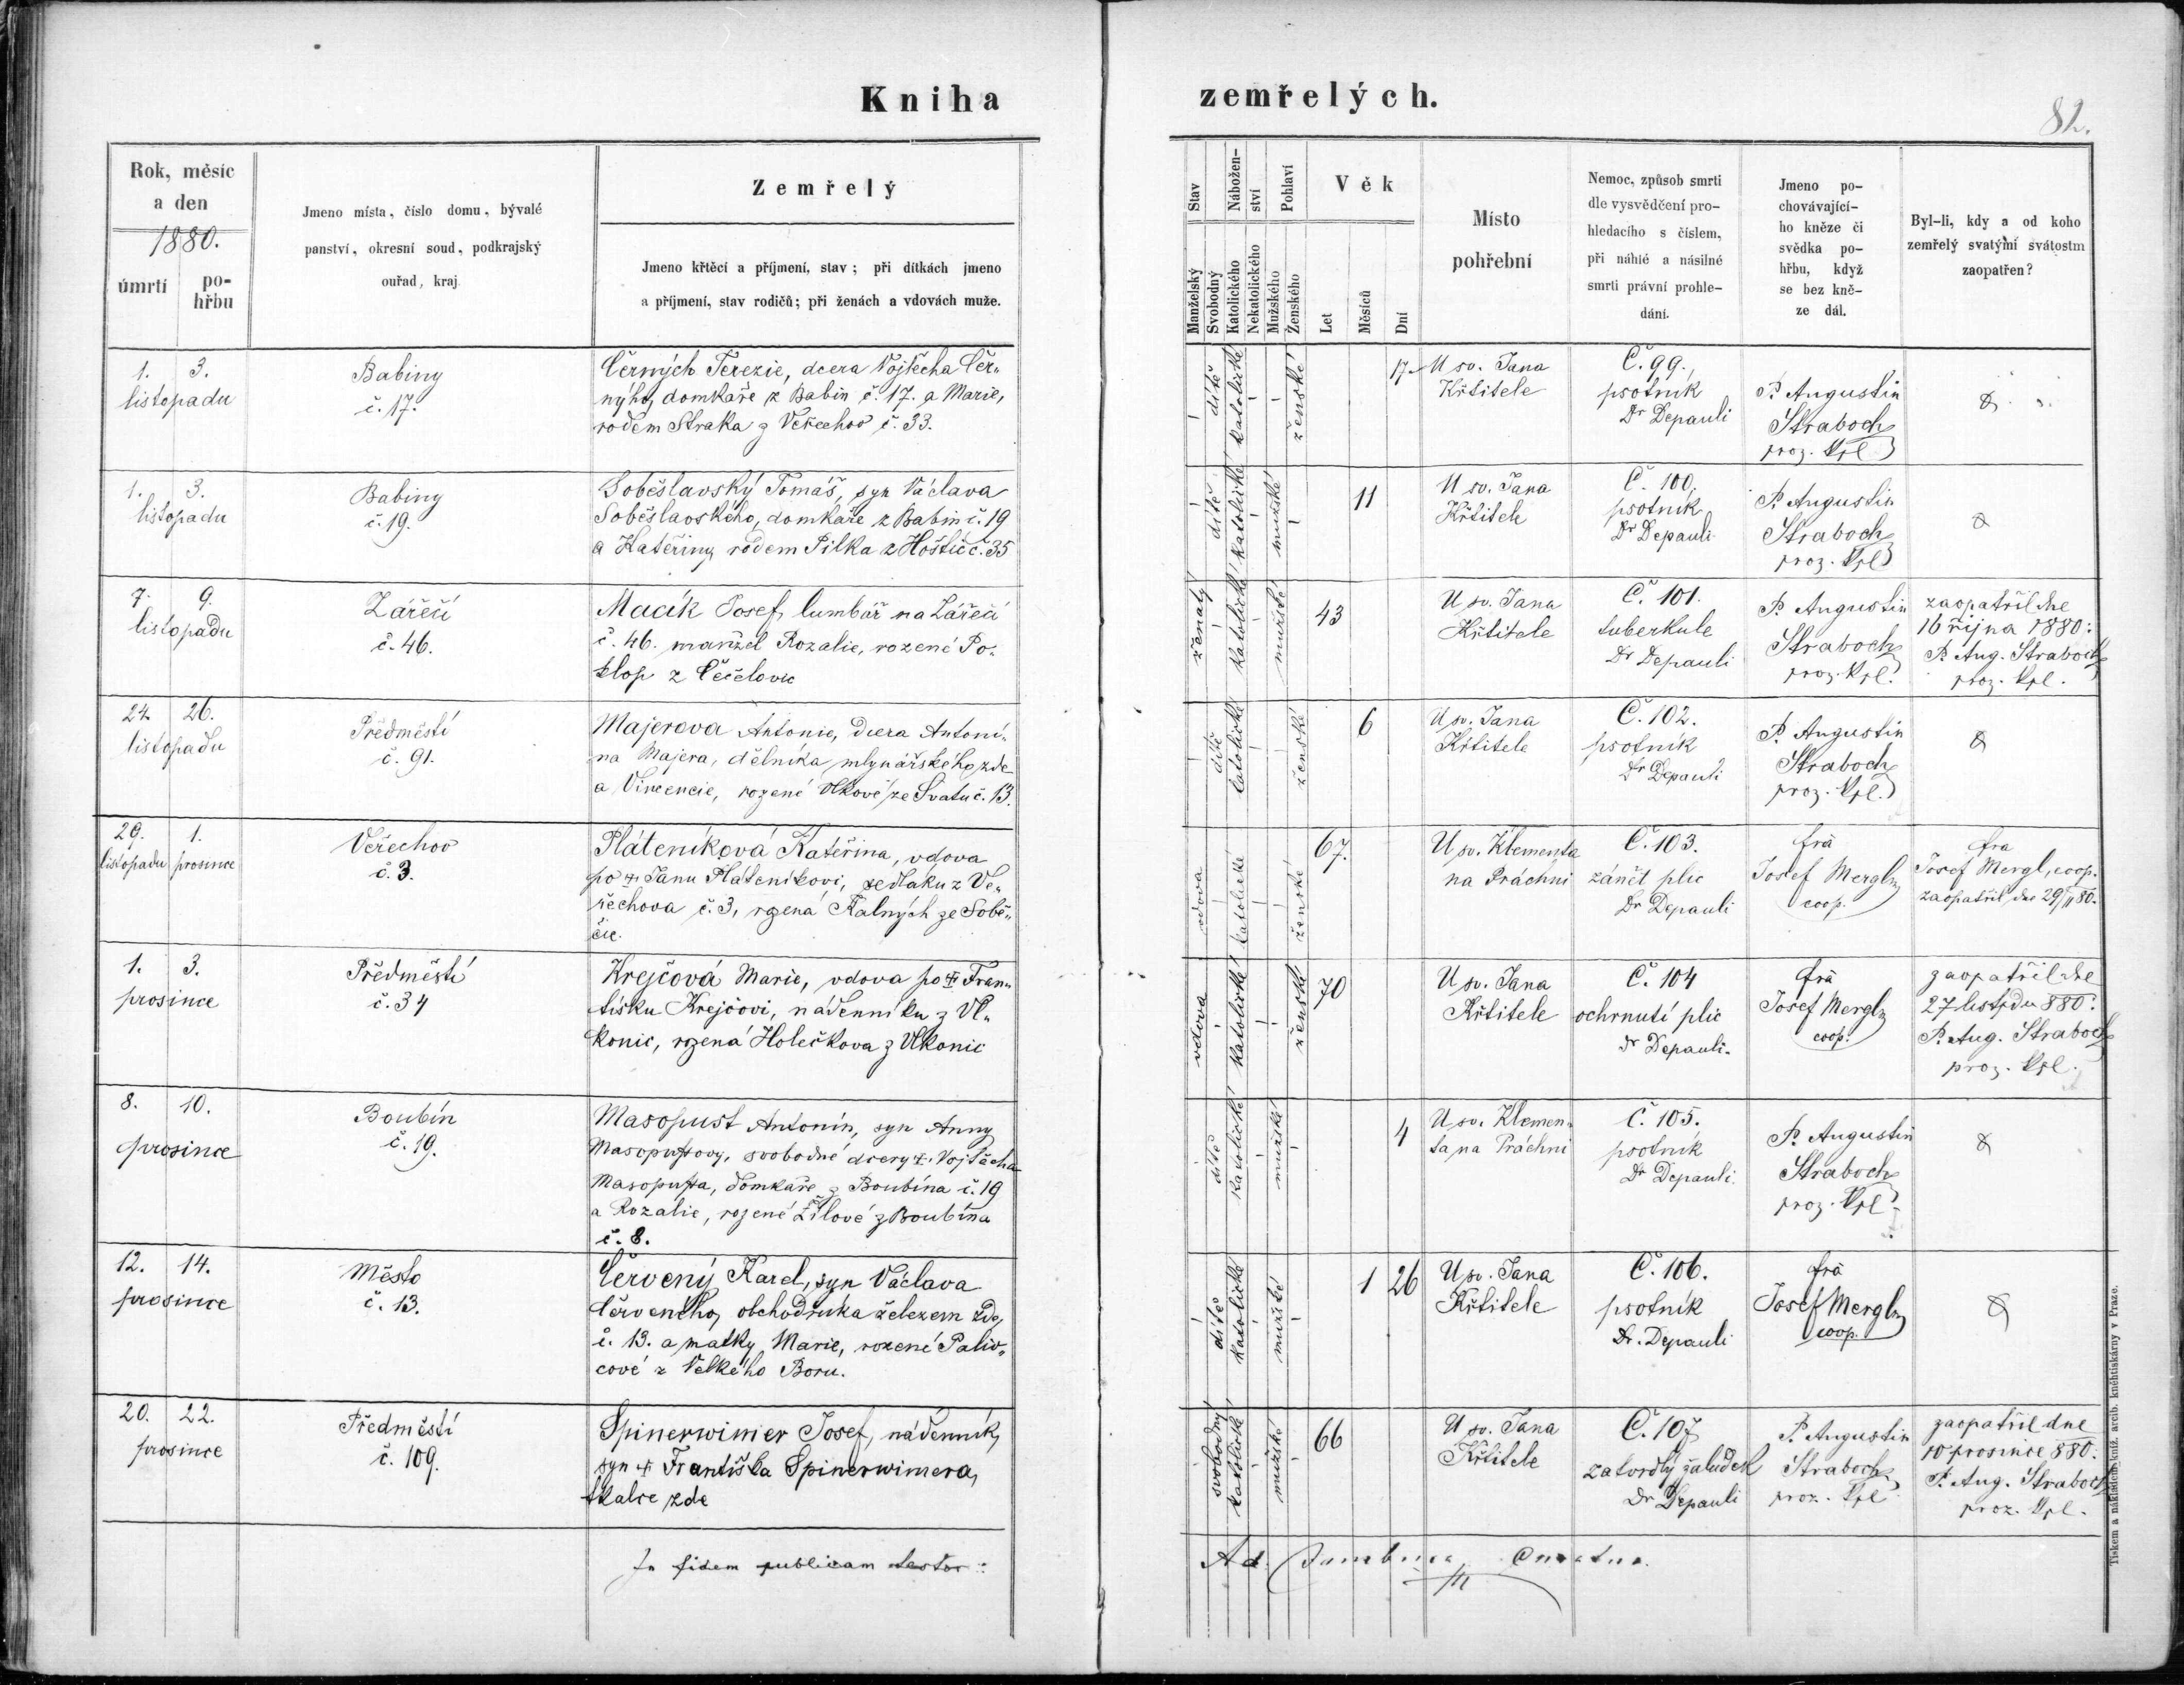 Kniha
zemřelých.
82.
Rok, měsíc
a den
1880.
úmrtí
po-
hřbu
Jmeno místa, číslo domu, bývalé
panství, okresní soud, podkrajský
ouřad, kraj
Zemřelý
Jmeno křtěcí a příjmení, stav; při dítkách jmeno
a příjmení, stav rodičů; při ženách a vdovách muže.
Stav
Manželský
Svobodný
Nábožen-
ství
Katolického
Nekatolického
Pohlaví
Mužského
Ženského
Věk
Let
Měsíců
Dní
Místo
pohřební
Nemoc, způsob smrti
dle vysvědčení pro-
hledacího s číslem,
při náhlé a násilné
smrti právní prohle-
dání.
Jmeno po-
chovávající-
ho kněze či
svědka po-
hřbu, když
se bez kně-
ze dál.
Byl-li, kdy a od koho
zemřelý svatými svátostmi
zaopatřen?
1. 3.
listopadu
Babiny
č. 17.
Černých Terezie, dcera Vojtěcha Čer„
nýho, domkáře z Babin č. 17. a Marie,
rodem Straka z Veřechov č. 33.
dítě
katolické
ženské
17
U sv. Jana
Křtitele
Č. 99.
psotník
Dr Depauli
P. Augustin
Straboch
proz. kpl.
1. 3.
listopadu
Babiny
č. 19.
Soběslavský Tomáš, syn Václava
Soběslavského, domkáře z Babin č. 19
a Kateřiny rodem Pilka z Hoštic č. 35
dítě
katolické
mužské
11
U sv. Jana
Křtitele
Č. 100.
psotník
Dr Depauli
P. Augustin
Straboch
proz. kpl.
7. 9.
listopadu
Zářečí
č. 46.
Macík Josef, lumbář na Zářečí
č. 46. manžel Rozalie, rozené Po„
klop z Čečelovic
ženatý
katolické
mužské
43
U sv. Jana
Křtitele
Č. 101.
tuberkule
Dr Depauli
P. Augustin
Straboch
proz. kpl.
zaopatřil dne
16 října 1880:
P. Aug. Straboch
proz. kpl.
24. 26.
listopadu
Předměstí
č. 91.
Majerova Antonie, dcera Antoní„
na Majera, dělníka mlynářského zde
a Vincencie, rozené Vlkové ze Svatu č. 13.
dítě
katolické
ženské
6
U sv. Jana
Křtitele
Č. 102.
psotník
Dr Depauli
P. Augustin
Straboch
proz. kpl.
29. 1.
listopadu prosince
Veřechov
č. 3.
Pláteníková Kateřina, vdova
po + Janu Pláteníkovi, sedláku z Ve„
řechova č. 3, rozená Kalných ze Sobě„
čic.
vdova
katolické
ženské
67.
U sv. Klementa
na Práchni
Č. 103.
zánět plic
Dr Depauli
fra
Josef Mergl
coop.
fra
Josef Mergl, coop.
zaopatřil dne 29/11 80.
1. 3.
prosince
Předměstí
č. 34
Krejčová Marie, vdova po + Fran„
tišku Krejčovi, nádenníku z Vl„
konic, rozená Holečkova z Vlkonic
vdova
katolické
ženské
70
U sv. Jana
Křtitele
Č. 104
ochrnutí plic
Dr Depauli.
fra
Josef Mergl
coop.
zaopatřil dne
27 listopdu 880:
P. Aug. Straboch
proz. kpl.
8. 10.
prosince
Boubín
č. 19.
Masopust Antonín, syn Anny
Masopustovy, svobodné dcery + Vojtěcha
Masopusta, domkáře z Boubína č. 19
a Rozalie, rozené Žílové z Boubína
č. 8.
dítě
katolické
mužské
4
U sv. Klemen„
ta na Práchni
Č. 105.
psotník
Dr Depauli
P. Augustin
Straboch
proz. kpl.
12. 14.
prosince
Město
č. 13.
Červený Karel, syn Václava
Červeného, obchodníka železem zde,
č. 13. a matky Marie, rozené Paliv„
cové z Velkého Boru.
dítě
katolické
mužské
1 26
U sv. Jana
Křtitele
Č. 106.
psotník
Dr. Depauli
fra
Josef Mergl
coop.
20. 22.
prosince
Předměstí
č. 109.
Spinerwimer Josef, nádenník,
syn + Františka Spinerwimera,
tkalce zde
svobodný
katolické
mužské
66
U sv. Jana
Křtitele
Č. 107
zatvrdlý žaludek
Dr Depauli
P. Augustin
Straboch
proz. kpl
zaopatřil dne
10 prosince 880:
P. Aug. Straboch
proz. kpl.
In fidem publicam testor:
Ad.
Tiskem a nákladem kníž. arcib. knihtiskárny v Praze.